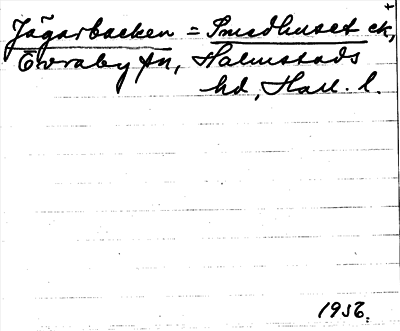 Jägarbacken = Smedhuset ck,
Enraby sn, Halmstads
hd, Hall. l.
1956.